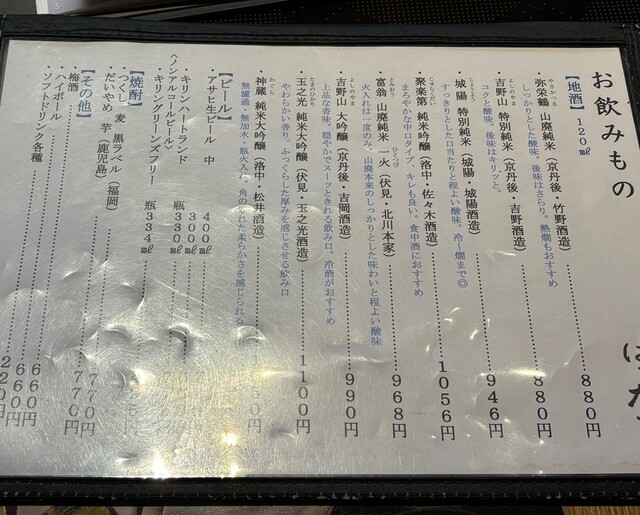 お飲みもの
【地酒】120㎖
・弥栄鶴 山廃純米（京丹後・竹野酒造） 880円
やさかつる
しっかりとした酸味。後味はさらり。熱燗もおすすめ
・吉野山 特別純米（京丹後・吉野酒造） 880円
よしのやま
コクと酸味。後味はキリッと。
・城陽 特別純米（城陽・城陽酒造） 946円
じょうよう
すっきりとした口当たりと程よい酸味。冷〜燗まで◎
・聚楽第 純米吟醸（洛中・佐々木酒造） 1056円
じゅらくだい
まろやかな中口タイプ。キレも良い。食中酒におすすめ
・富翁 山廃純米 一火（伏見・北川本家） 968円
とみおう
ひとつび
火入れは一度のみ、山廃本来のしっかりとした味わいと程よい酸味
・吉野山 大吟醸（京丹後・吉岡酒造） 990円
よしのやま
上品な香味。穏やかでスーッときれる飲み口。冷酒がおすすめ
・玉乃光 純米大吟醸（伏見・玉乃光酒造） 1100円
たまのひかり
やわらかい香り。ふっくらした厚みを感じさせる飲み口
・神蔵 純米大吟醸（洛中・松井酒造）
かぐら
無濾過・無加水・瓶火入れ。角のとれた柔らかさを感じられる
【ビール】
・アサヒ生ビール 中 400㎖
・キリンハートランド 瓶 300㎖
〈ノンアルコールビール〉
・キリングリーンズフリー 瓶 334㎖
【焼酎】
・つくし 麦 黒ラベル（福岡）
・だいやめ 芋（鹿児島） 770円
【その他】
・梅酒 660円
・ハイボール 660円
・ソフトドリンク各種 220円